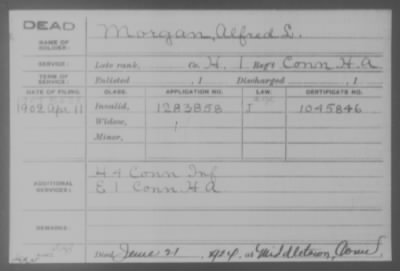 DEAD
NAME OF SOLDIER: Morgan, Alfred L.
SERVICE: Late rank, Co. H, 1 Reg't Conn H.A
TERM OF SERVICE: Enlisted , 1 Discharged , 1
DATE OF FILING. CLASS. APPLICATION NO. LAW. CERTIFICATE NO.
1902 Apr 11 Invalid, 1283858 J 1045846
Widow,
Minor,
ADDITIONAL SERVICES: H 4 Conn Inf
E 1 Conn H.A
REMARKS:
Died June 21, 1924, at Middletown, Conn.